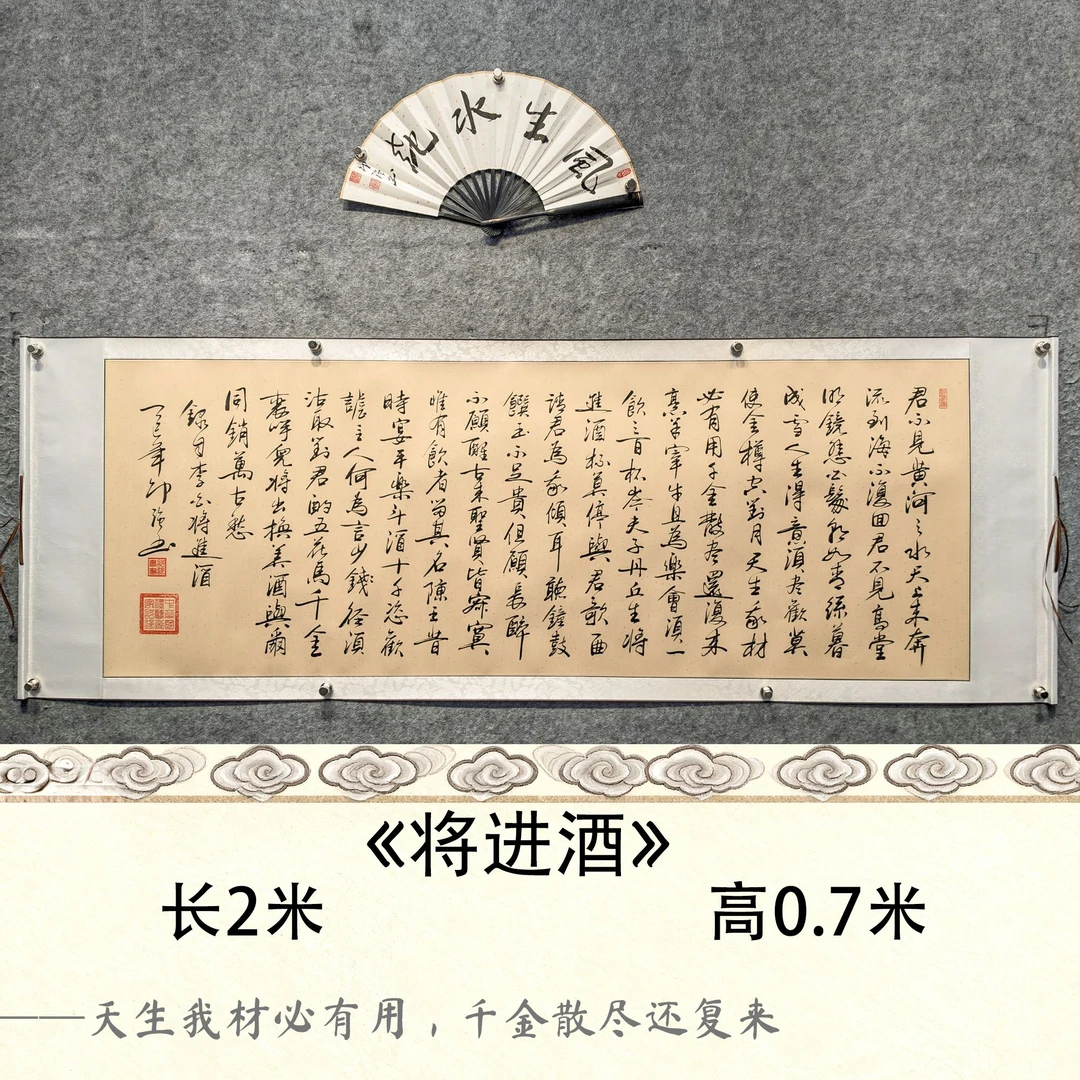 風生水起
君不見黄河之水天上来奔
流到海不復回君不見高堂
明鏡悲白髮朝如青絲暮
成雪人生得意須尽歡莫
使金樽空對月天生我材
必有用千金散尽還復来
烹羊宰牛且為樂會須一
飲三百杯岑夫子丹丘生將
進酒杯莫停與君歌曲
請君為我傾耳聽鐘鼓
饌玉不足貴但願長醉
不願醒古来聖賢皆寂寞
唯有飲者留其名陳王昔
時宴平樂斗酒十千恣歡
謔主人何為言少錢徑須
沽取對君酌五花馬千金
裘呼兒將出換美酒與爾
同銷萬古愁
録唐李白將進酒
《将进酒》
长2米
高0.7米
——天生我材必有用，千金散尽还复来